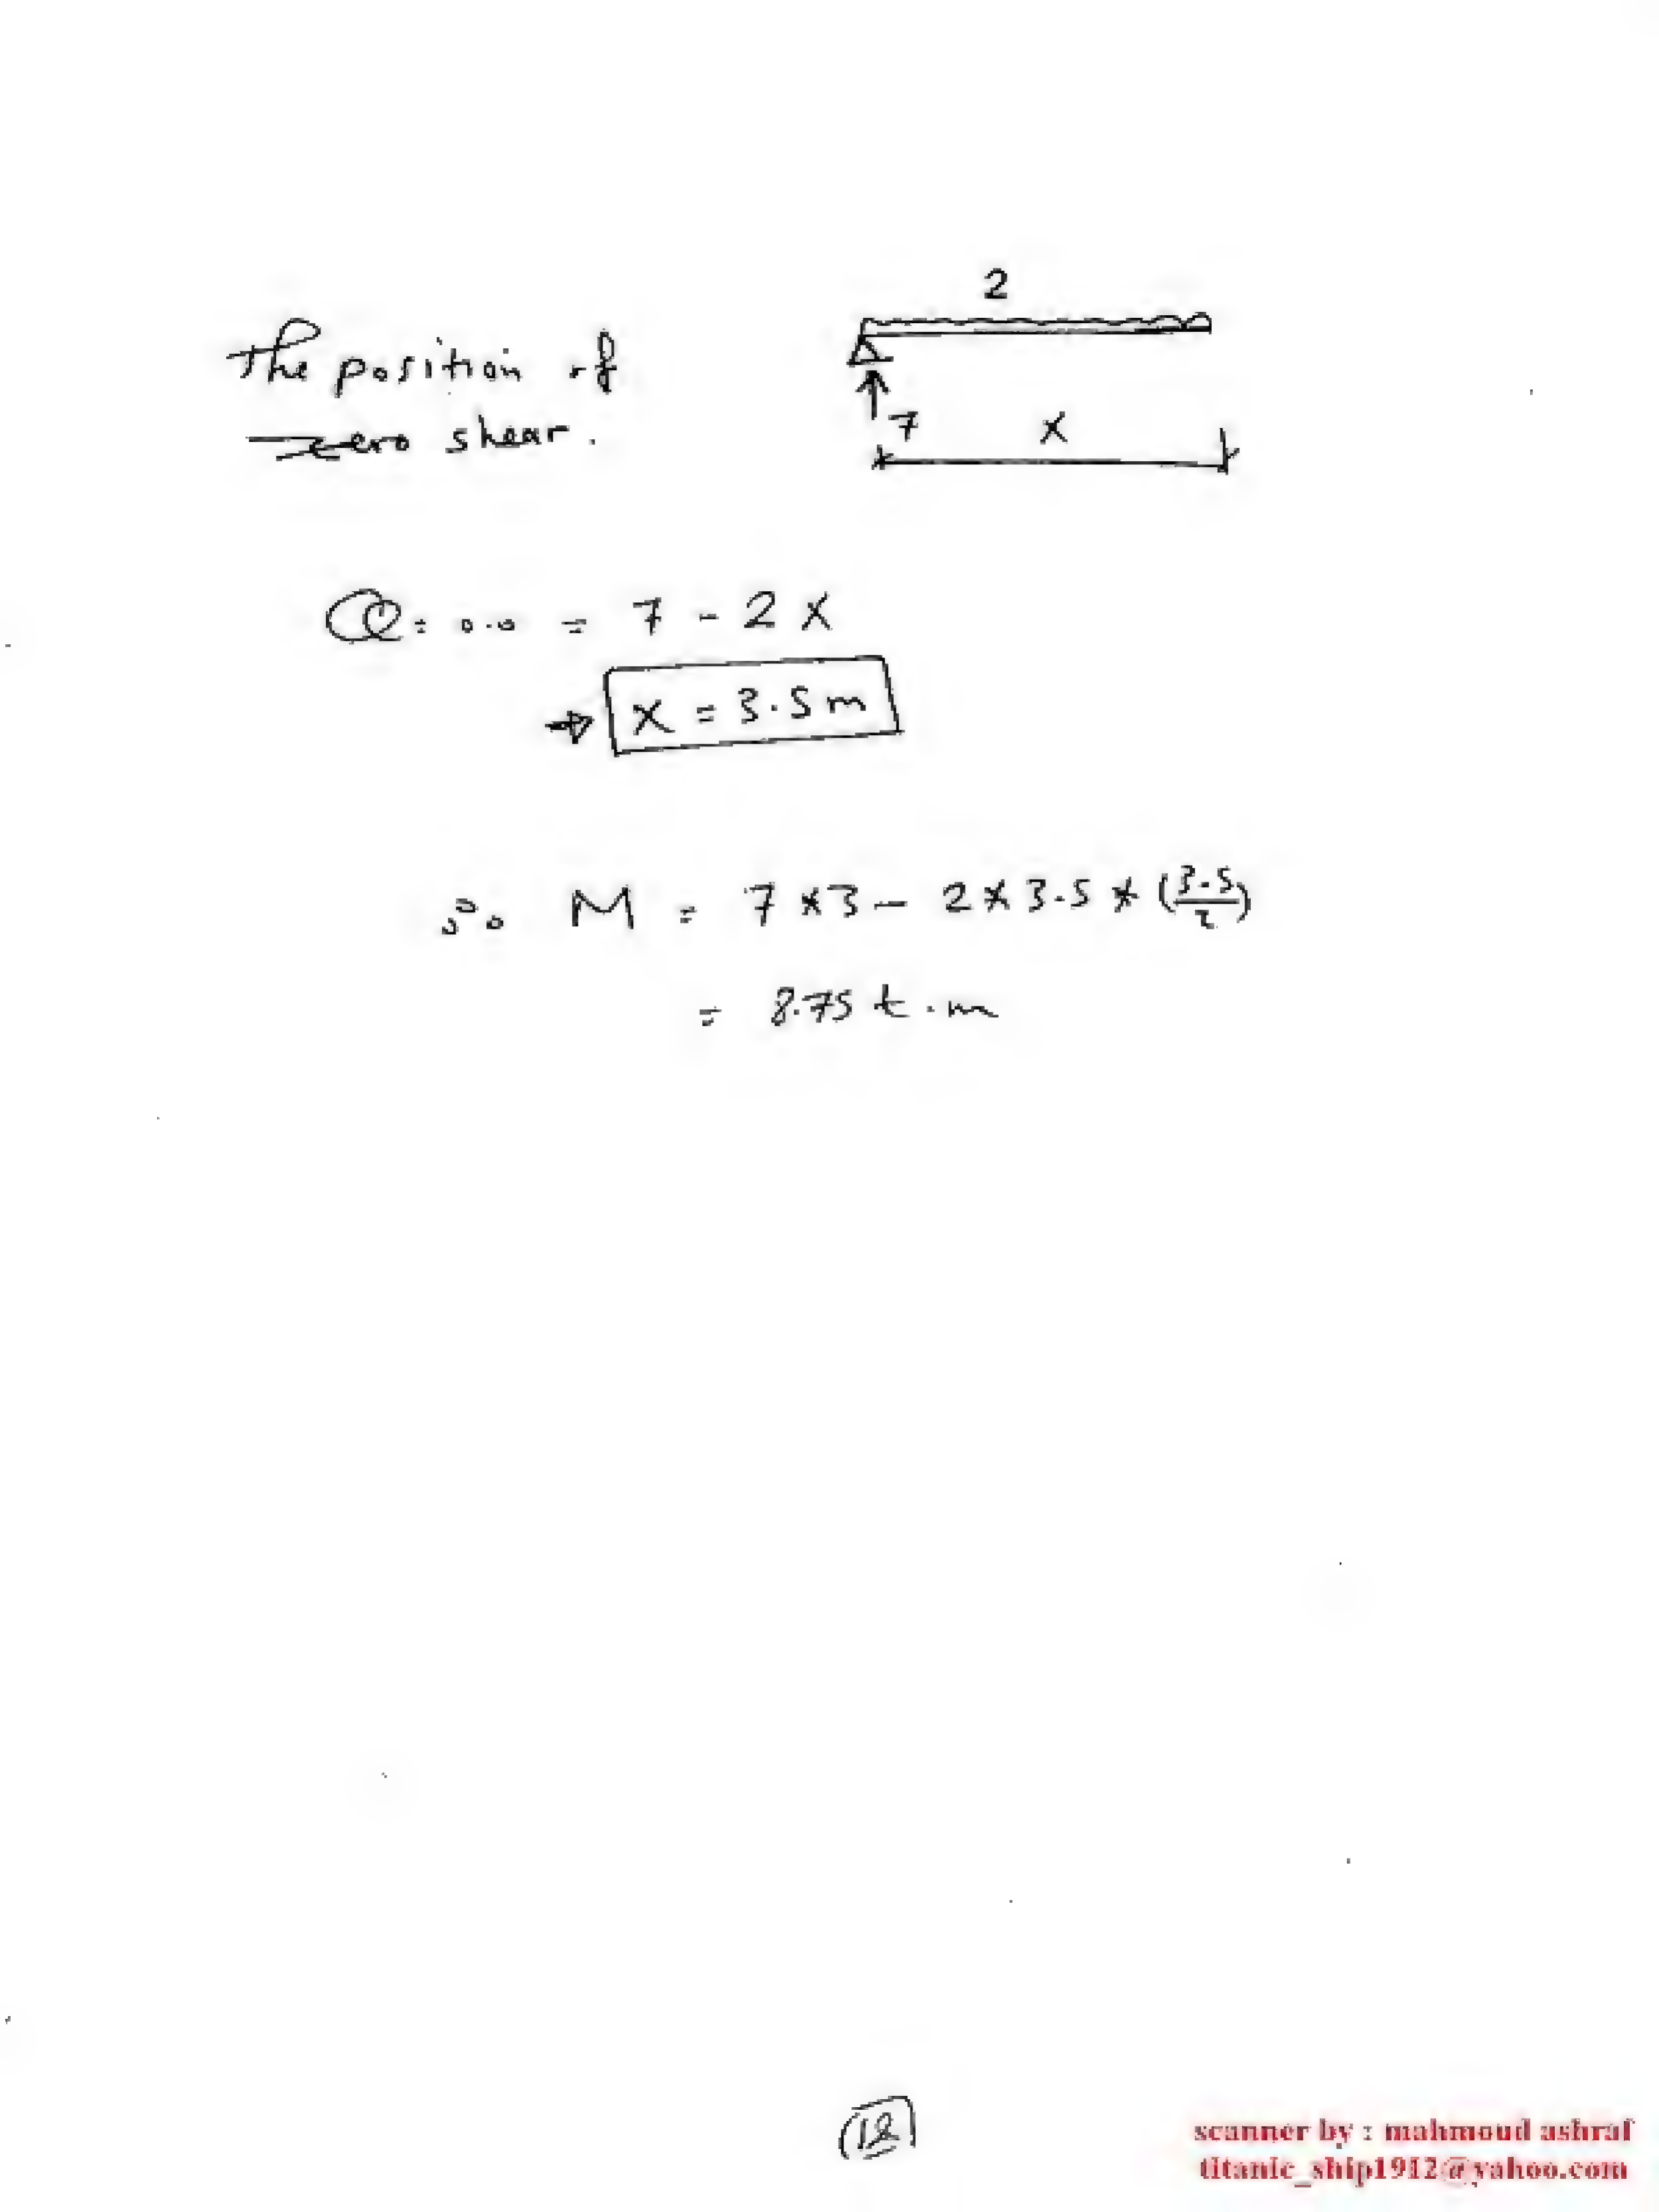 2
The position of
zero shear.
7
x
Q = 0.0 = 7 - 2 x
⇒ x = 3.5 m
∴ M = 7 * 3 - 2 * 3.5 * (3.5/2)
= 8.75 t.m
(12)
scanner by : mahmoud ashraf
titanic_ship1912@yahoo.com